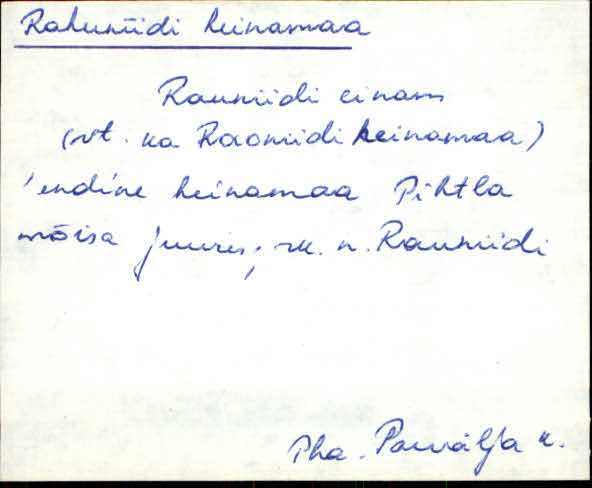 Rahuniidi heinamaa
Rauniidi einam
(vt. ka Raoniidi heinamaa)
'endine heinamaa Pihtla
mõisa juures; rk. n. Rauniidi
Pha. Pamälja k.